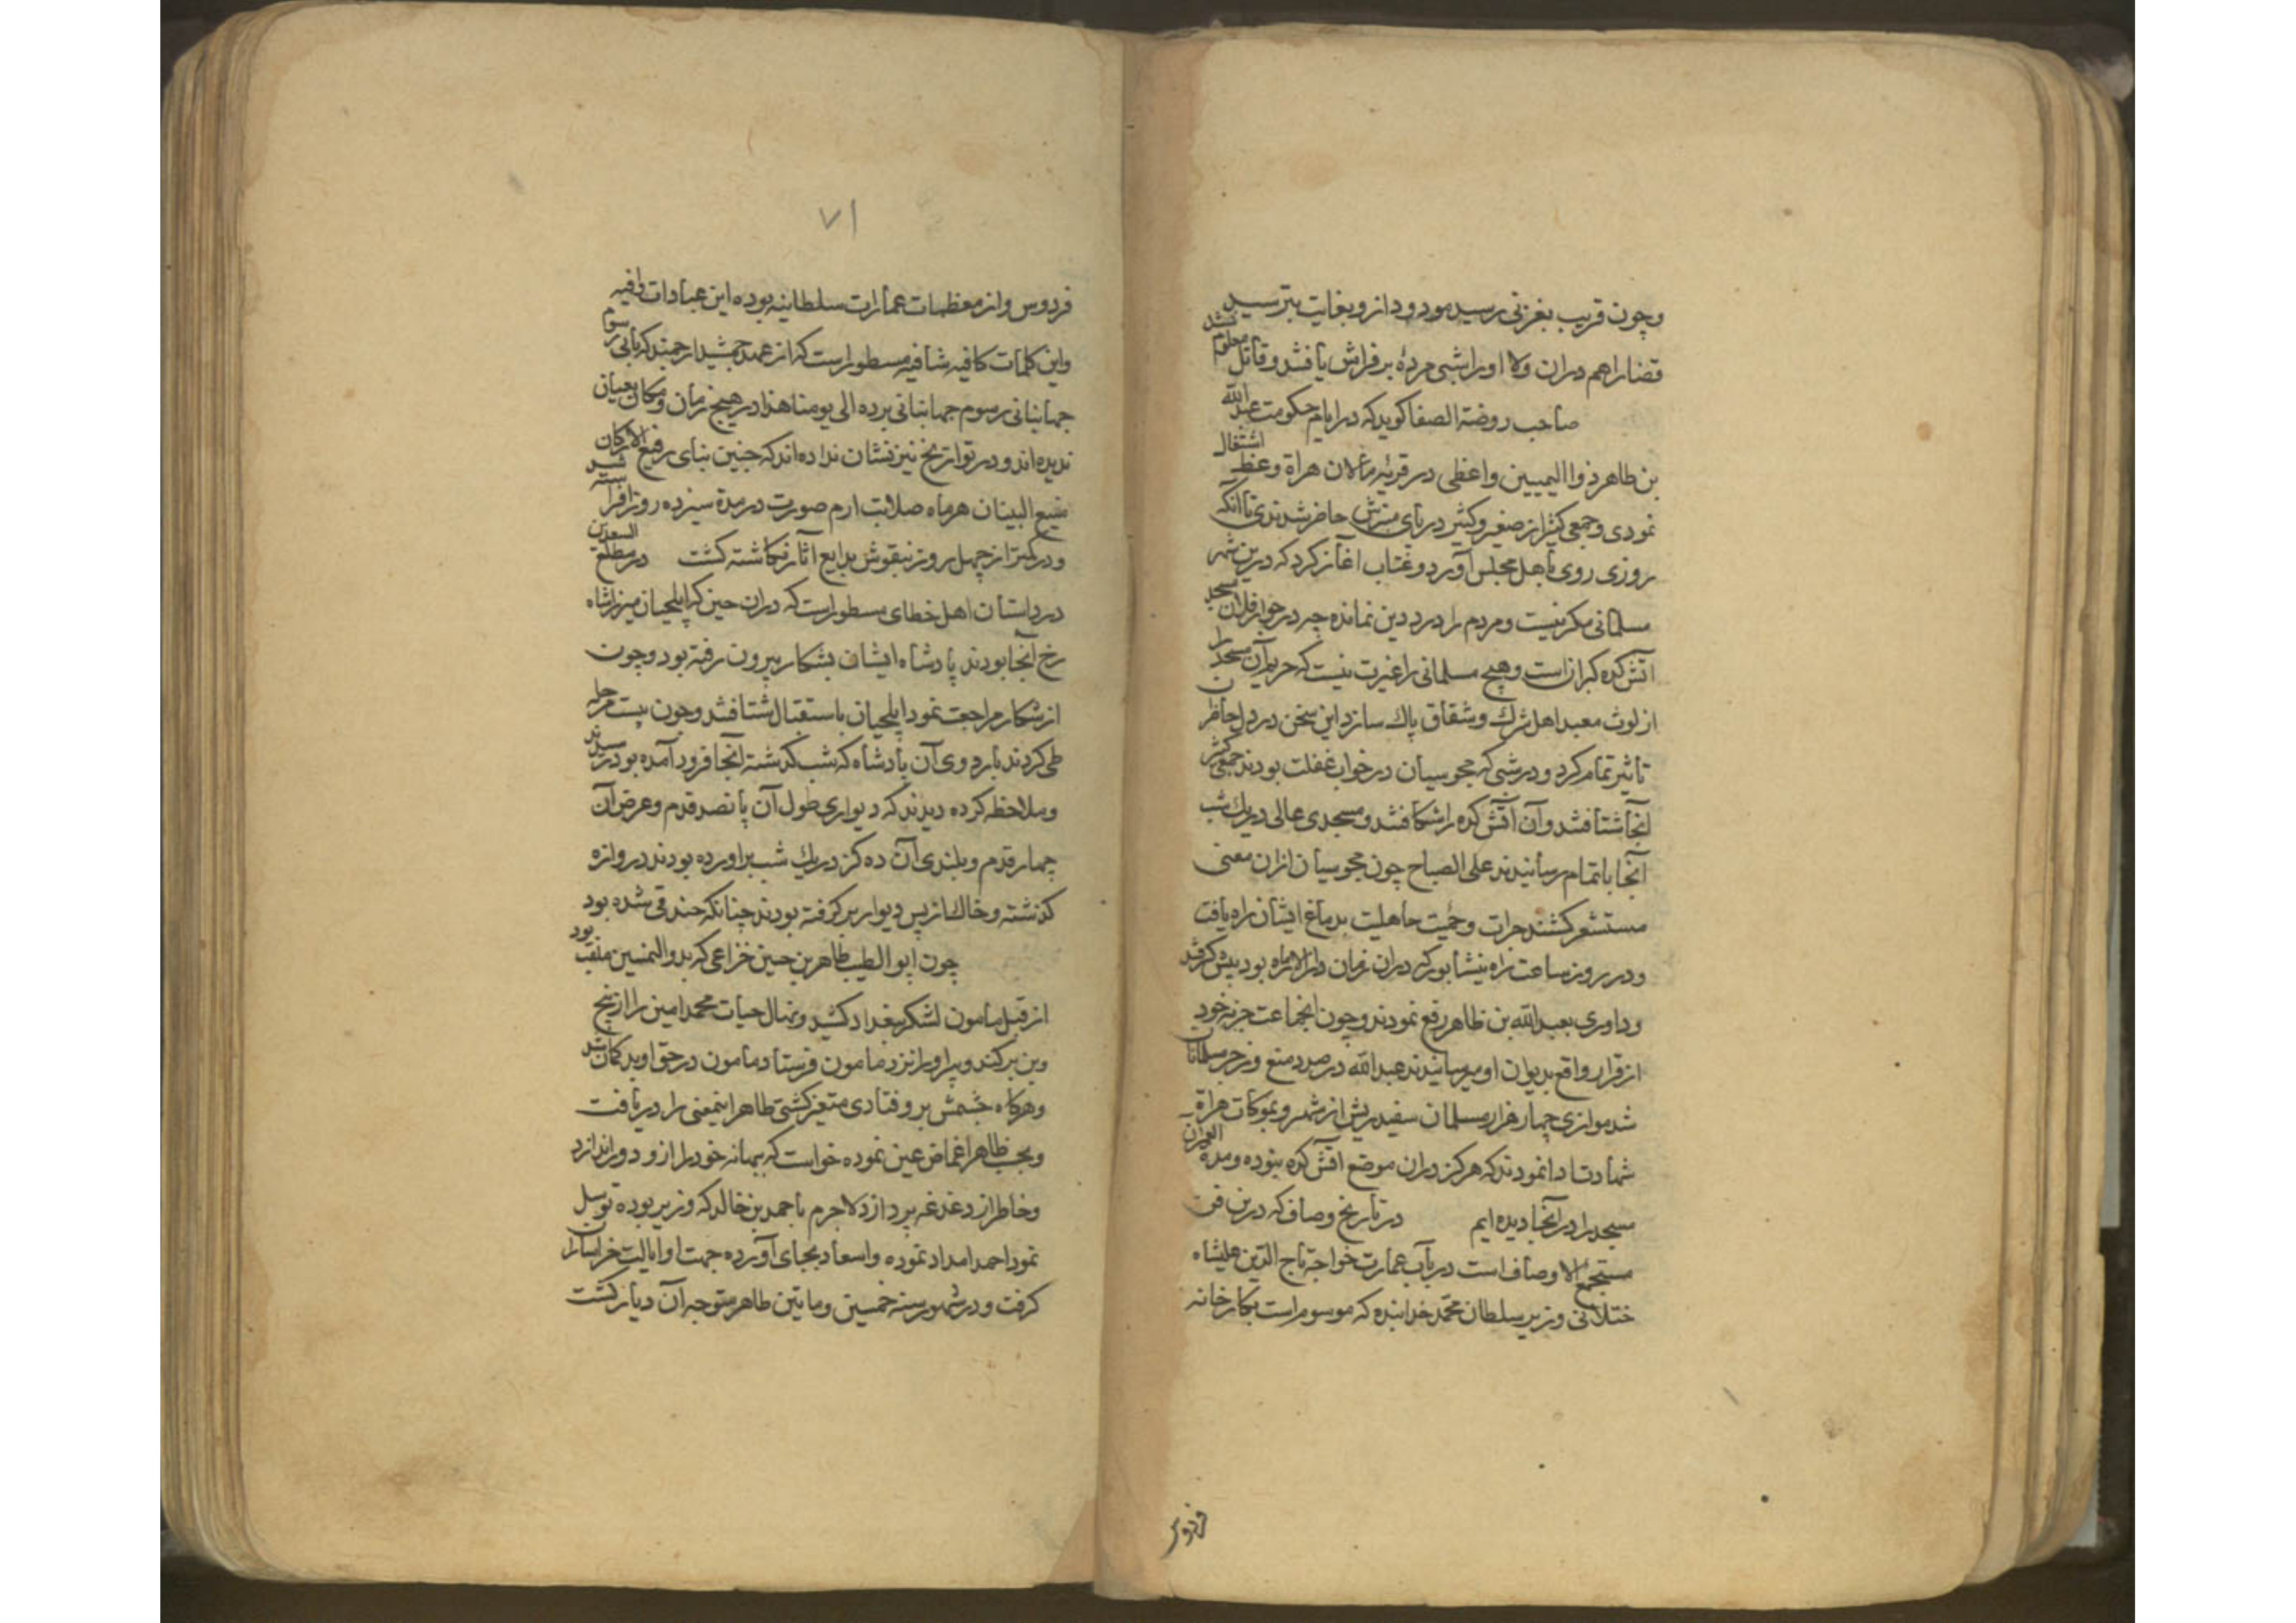 وچون قریب بغزنی رسید مودود ازو بغایت بترسید
قضارا هم دران ولا اورا شبی مرده بر فراش یافتند و قاتل معلوم نشد
صاحب روضة الصفا کوید که در ایام حکومت عبد الله
بن طاهر ذوا الیمینین واعظی در قریه مالان هراة وعظ اشتغال
نمودی و جمعی کثیر از صغیر و کبیر در پای منبرش حاضر شدندی تا آنکه
روزی روی باهل مجلس آورد و عتاب اغاز کرد که درین شهر
مسلمانی مکر نیست و مردم را درد دین نمانده چه در جوار فلان مسجد
آتش کده کبران است وهیچ مسلمانی را غیرت نیست که حریم آن مسجد را
از لوث معبد اهل شرک و شقاق پاک سازد این سخن در دل حاضران
تاثیر تمام کرد و در شبی که مجوسیان در خواب غفلت بودند جمعی کثیر
آنجا شتافتند و آن آتش کده را شکافتند و مسجدی عالی در یک شب
آنجا باتمام رسانیدند علی الصباح چون مجوسیان ازان معنی
مستشعر کشتند جرات و حمیت جاهلیت بدماغ ایشان راه یافت
و در روز ساعت راه نیشابور که دران زمان دار الاماره بود پیش کرفتند
و داوری بعبد الله بن طاهر رفع نمودند و چون انجماعت جزیه خود
از قرار واقع بدیوان او میرسانیدند عبد الله در صدد منع و زجر مسلمانان
شد موازی چهار هزار مسلمان سفید ریش از شهر و بموکات هراة
شهادت ادا نمودند که هرکز دران موضع آتش کده نبوده و مدة العمر ان
مسجد را در آنجا دیده ایم در تاریخ وصاف که درین فن
مستجمع الاوصاف است در باب عمارت خواجه تاج الدین علیشاه
ختلانی وزیر سلطان محمد خدابنده که موسوم است بکارخانه
فردوس
۷۱
فردوس و از معظمات عمارات سلطانیه بوده این عبادات وافیه
واین کلمات کافیه شافیه مسطور است که از عهد جمشید ارجمند که بانی رسوم
جهانبانی رسوم جهانبانی برده الی یومنا هذا در هیچ زمان و مکان بعیان
ندیده اند و در تواریخ نیز نشان نداده اند که جنین بنای رفیع الارکان
منیع البینان هرماه صلابت ارم صورت در مدة سیزده روز افراشته شد
و در کمتر از چهل روز بنقوش بدایع آثار نکاشته کشت در مطلع السعدین
در داستان اهل خطای مسطور است که دران حین که ایلچیان میرزا شاه
رخ آنجا بودند پادشاه ایشان بشکار بیرون رفته بود و چون
از شکار مراجعت نمود ایلچیان باستقبال شتافتند و چون بیست مرحله
طی کردند باردوی آن پادشاه که شب کذشته آنجا فرود آمده بود رسیدند
و ملاحظه کرده دیدند که دیواری طول آن پانصد قدم و عرض آن
چهار قدم و بلندی آن ده کز در یک شب براورده بودند دروازه
کذشته و خاک از پس دیوار بر کرفته بودند چنانکه خندقی شده بود
چون ابو الطیب طاهر بن حسین خزاعی که بذو الیمنین ملقب بود
از قبل مامون لشکر ببغداد کشید و نهال حیات محمد امین را از بیخ
وبن بر کند و سر اورا نزد مامون فرستاد مامون در حق او بد کمان شد
وهرکاه چشمش برو فتادی متغیر کشتی طاهر اینمعنی را دریافت
و بحسب ظاهر اغماض عین نموده خواست که ببهانه خود را ازو دور اندازد
وخاطر از دغدغه بپردازد لاجرم باحمد بن خالد که وزیر بوده توسل
نمود احمد امداد نموده و اسعاد بجای آورده جهت او ایالت خراسان را
کرفت و در شهور سنه خمسین وماتین طاهر متوجه آن دیار کشت